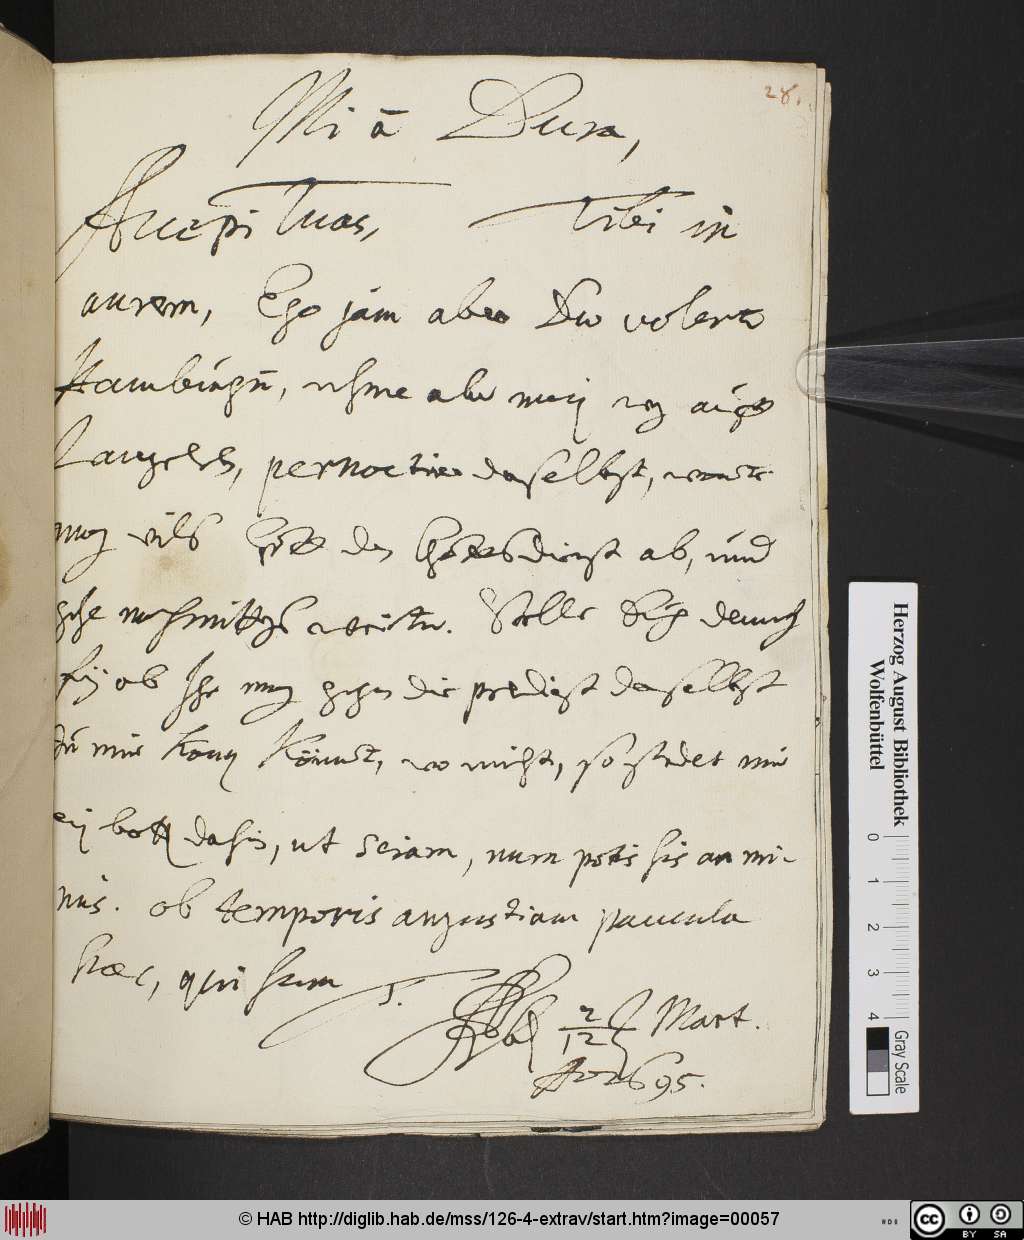 28.
Mi à Dura,
Accepi Tuas, Tibi in
aurem, Ego jam abeo Deo volente
Hamburgū, nehme aber meinen weg auf
pernoctire daselbst, warte
will Gott den Gottesdienst ab, und
gehe nachmittags weiter. Stelle dennoch
ob Ihr gegen die predigt daselbst
zu mir komen könnet, wo nicht, so sendet mir
ein botten dahin, ut sciam, num potis sis an mi-
nus. ob temporis angustiam paucula
haec, qui sum
T.
2/12 Mart.
Ao 1695.
Herzog August Bibliothek
Wolfenbüttel
0 1 2 3 4
Gray Scale
© HAB http://diglib.hab.de/mss/126-4-extrav/start.htm?image=00057
cc BY SA